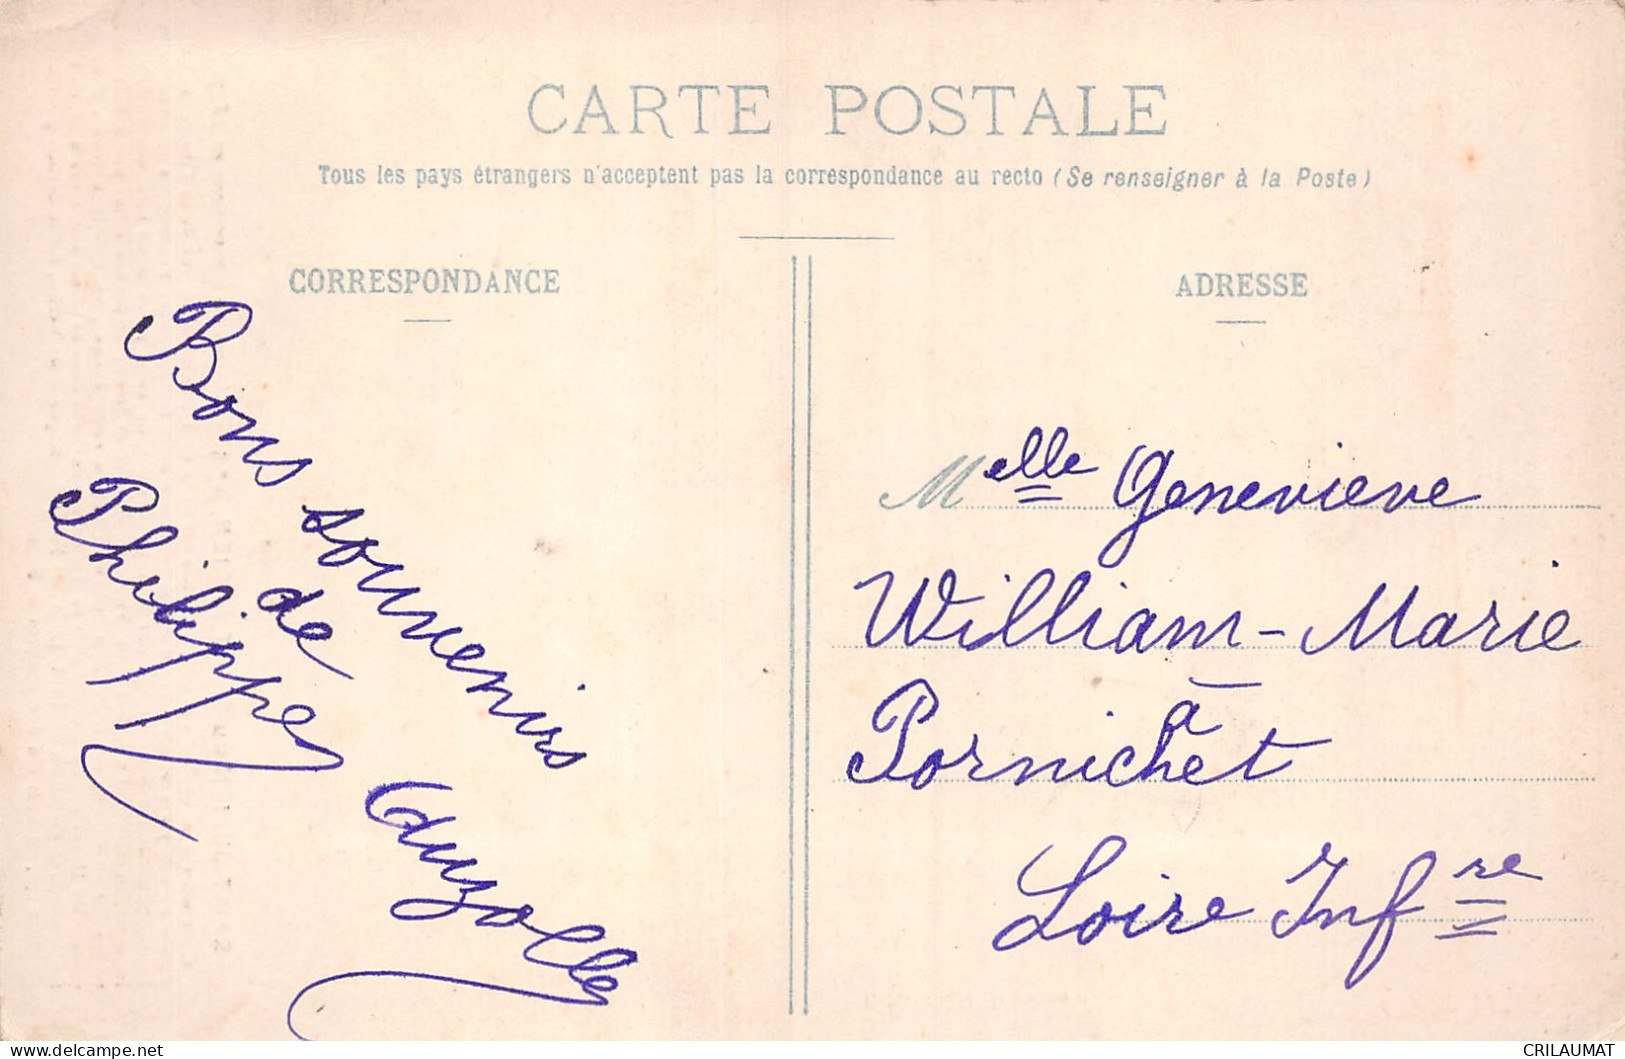 CARTE POSTALE
Tous les pays étrangers n'acceptent pas la correspondance au recto (Se renseigner à la Poste)
CORRESPONDANCE
Bons souvenirs
de
Philippe
Auzolle
ADRESSE
Melle Genevieve
William-Marie
à
Pornichet
Loire Infre
delcampe.net
CRILAUMAT